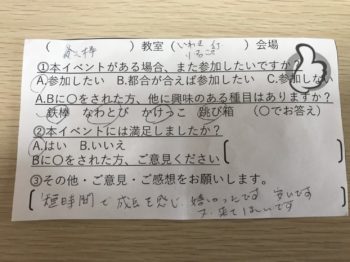 ( 鉄棒 )教室(いわき 会場
①本イベントがある場合、また参加したいですか?
A.参加したい B.都合が合えば参加したい C.参加しない
A.Bに〇をされた方、他に興味のある種目はありますか?
鉄棒 なわとび かけっこ 跳び箱 (〇でお答え)
②本イベントには満足しましたか?
A.はい B.いいえ
Bに〇をされた方、ご意見ください
③その他・ご意見・ご感想をお願いします。
短時間で成長を感じ、嬉しかったです
又、来てほしいです